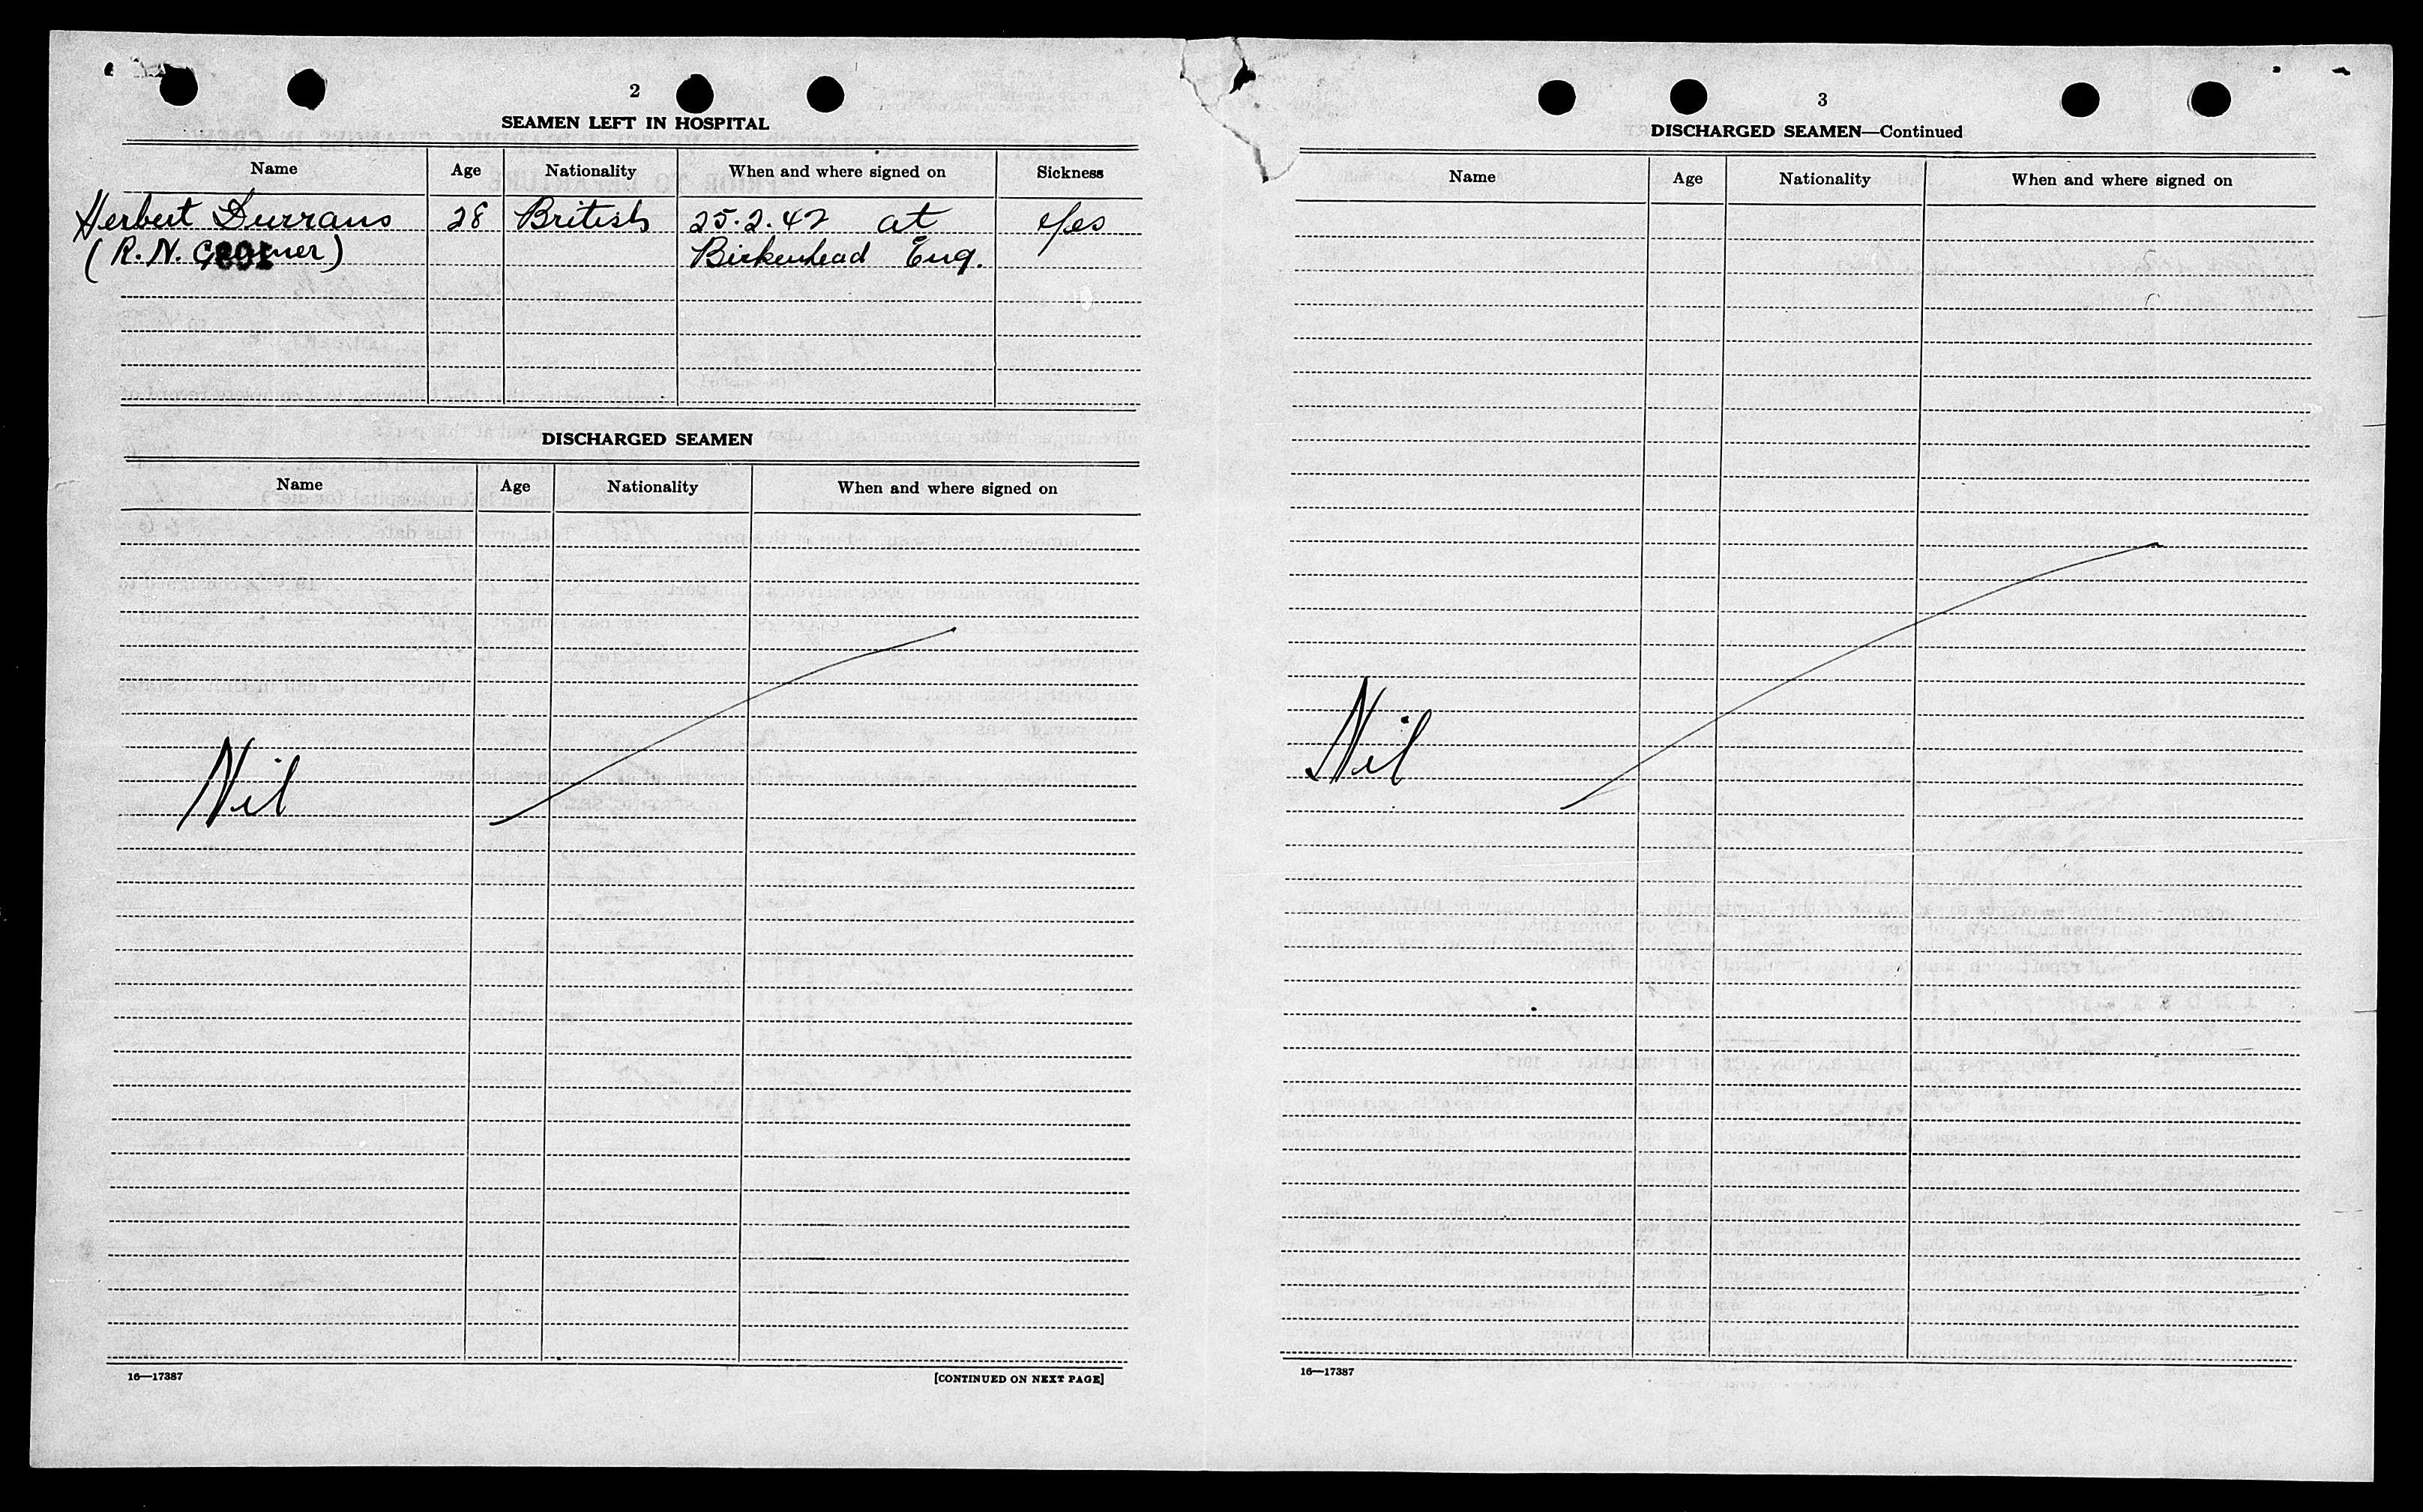 2
SEAMEN LEFT IN HOSPITAL
Name Age Nationality When and where signed on Sickness
Herbert Durrans 28 British 25.2.42 at Yes
(R.N. Gunner) Birkenhead Eng.
DISCHARGED SEAMEN
Name Age Nationality When and where signed on
Nil
16—17387 [CONTINUED ON NEXT PAGE]
3
DISCHARGED SEAMEN—Continued
Name Age Nationality When and where signed on
Nil
16—17387